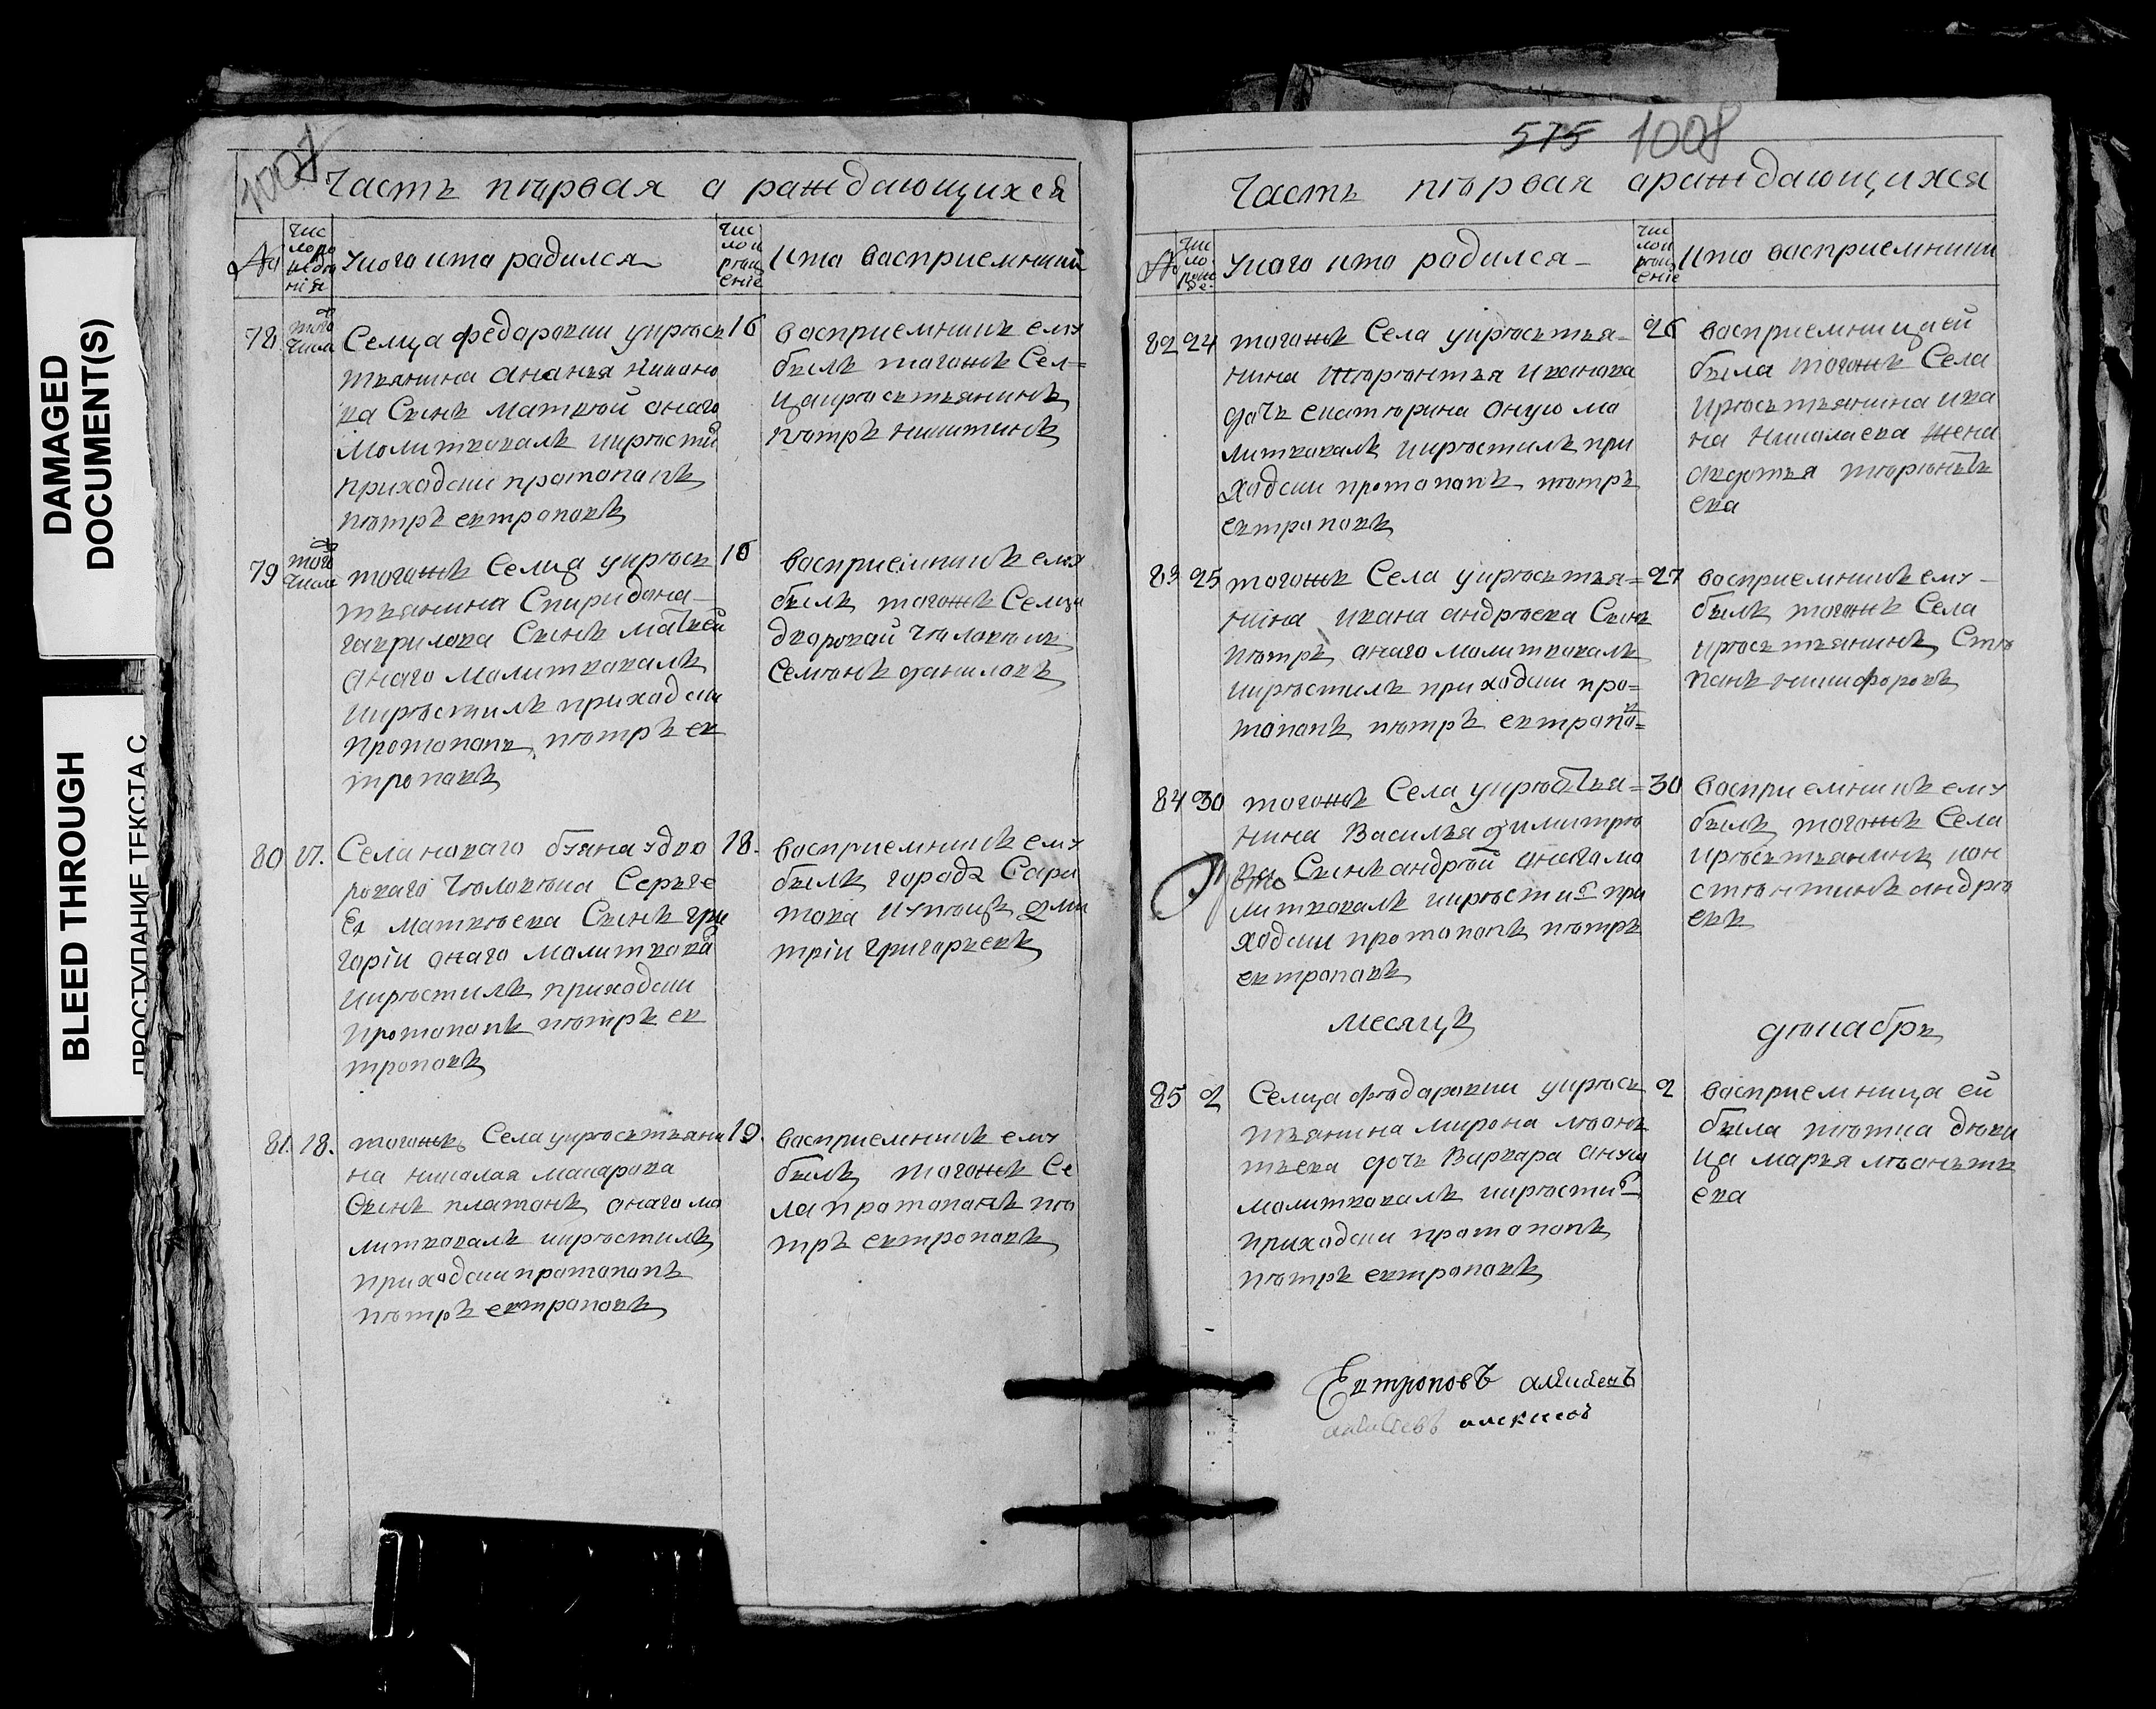 DAMAGED
DOCUMENT(S)
BLEED THROUGH
ПРОСТУПАНИЕ ТЕКСТА С
1007
Часть первая о раждающихся
№
чис
ло ро
ждения
у кого кто радился
чис
ло к
рещ
ение
кто васприемники
78
того
числа
Селца федаровки у крест
тьянина ананья
сынъ матвей онаго
молитвовалъ и крестил
приходски протопопъ
петръ евтроповъ
16
васприемникъ ему
былъ тагожъ Сел=
ца крестьянинъ
петръ никитинъ
79
того
числа
тогожъ Селца у крест
тьянина Спиридона
гаврилова сынъ матвей
онаго молитвовалъ
и крестилъ приходски
протопопъ петръ ев
троповъ
16
васприемникъ ему
былъ тогожъ Селца
дворовай человекъ
семенъ даниловъ
80
17.
Села новаго буяна у дво
роваго человека Серге
ея матвеева сынъ гри
горiи онаго молитвовал
и крестилъ приходски
протопопъ петръ ев
троповъ
18.
васприемникъ ему
былъ города Сара
това купецъ дми
трiи григорьевъ
81.
18.
тогожъ Села у крестьяни
на николая макарова
сынъ платонъ онаго мо
литвовалъ и крестилъ
приходски протопопъ
петръ евтроповъ
19.
васприемникъ ему
былъ тогожъ Се
ла протопопъ пе
тръ евтроповъ
575 1008
Часть первая ораждающихся
№
чис
ло
рож
де
у кого кто родился
чис
ло к
рещ
ение
кто васприемники
82
24
тогожъ Села у крестья=
нина терентья иванова
дочь екатерина оную мо
литвовалъ и крестилъ при
ходски протопопъ петръ
евтроповъ
26
васприемница ей
была тогожъ Села
крестьянина ива
на николаева жена
авдотья терентье
ева
83
25
тогожъ Села у крестья=
нина ивана андреева сынъ
петръ онаго молитвовалъ
и крестилъ приходски про=
топопъ петръ евтропов=
27
васприемникъ ему
былъ тогожъ Села
крестьянинъ Сте
панъ никифоровъ
84
30
тогожъ Села у крестья=
нина Василья димитре
ева сынъ андрей онаго мо
литвовалъ и крестил при
ходски протопопъ петръ
евтроповъ
30
васприемникъ ему
былъ тогожъ Села
крестьянинъ кон
стентинъ андре
евъ
месяцъ
декабрь
85
2
Селца федаровки у крест
тьянина мирона леонть
тьева дочь Варвара оную
молитвовалъ и крестил
приходски протопопъ
петръ евтроповъ
2
васприемница ей
была тогожъ
ца марья леоньть
ева
Евтроповъ
алексеев